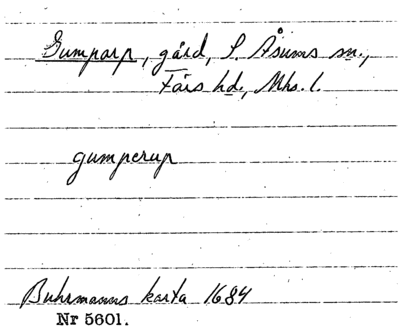 Gumparp, gård, S. Åsums sn.,
Färs hd., Mhs. l.
gumperup
Buhrmanns karta 1684
Nr 5601.